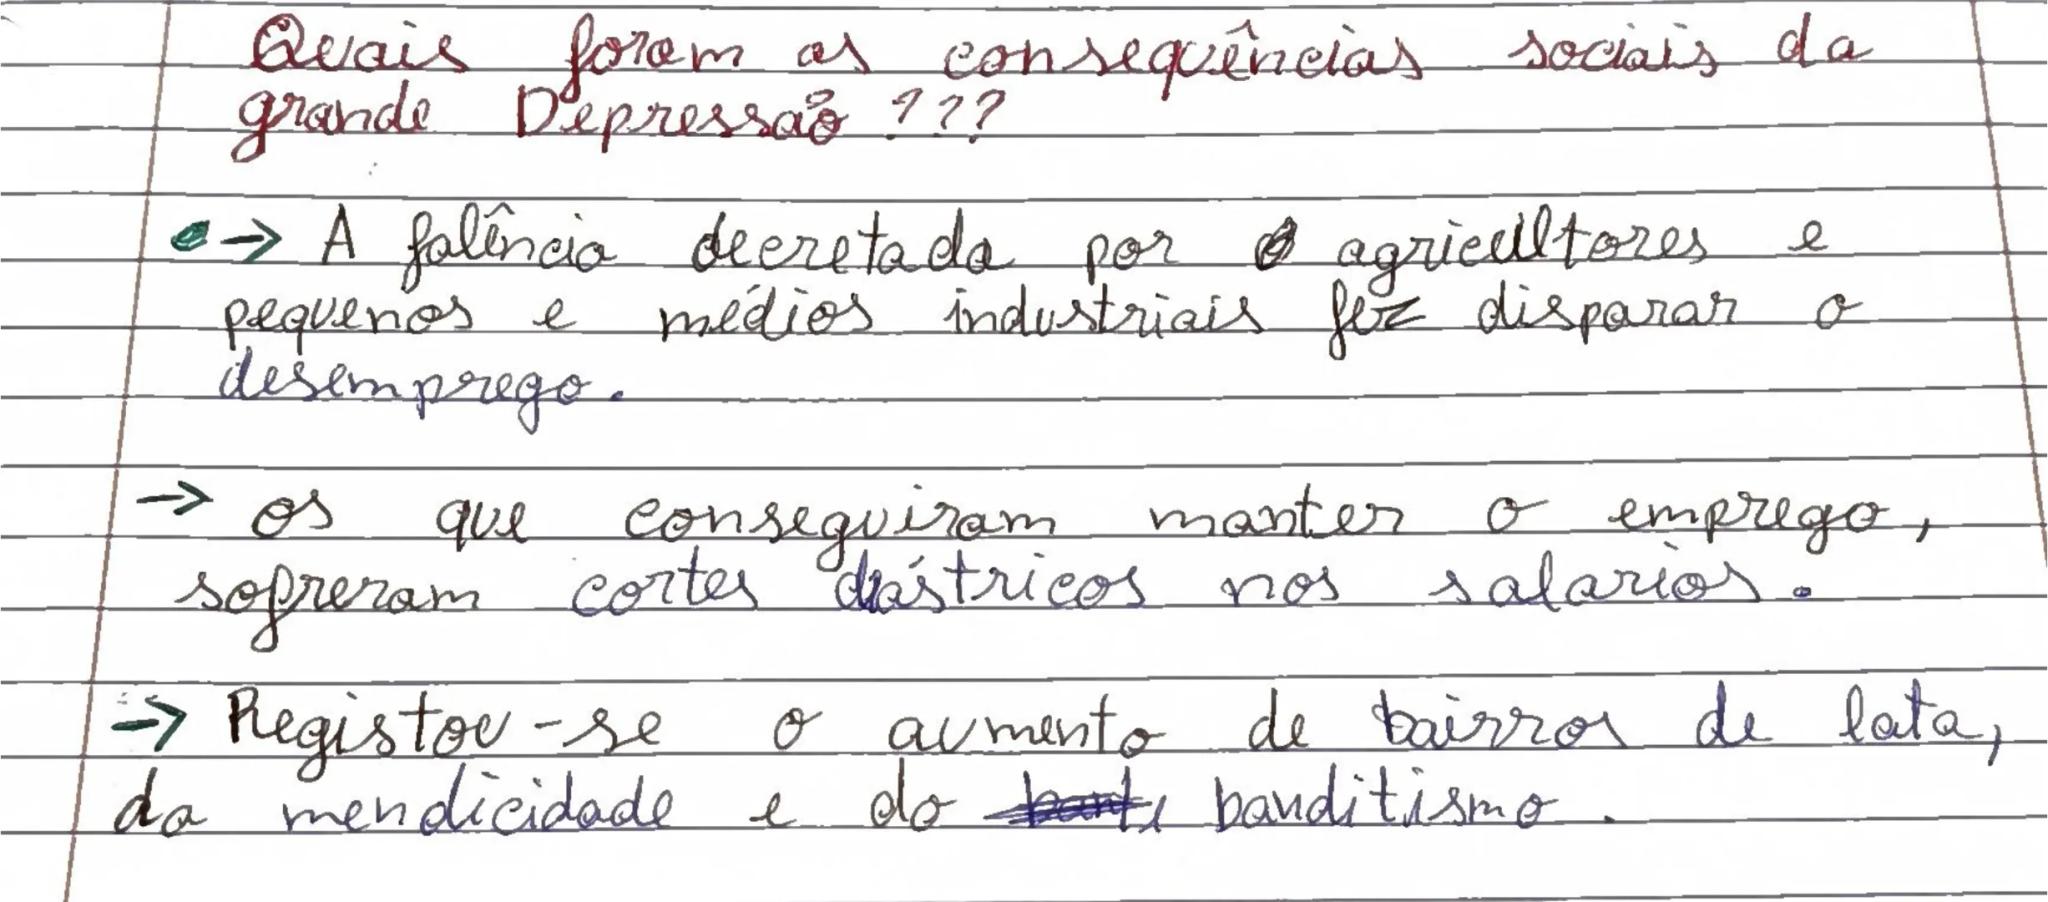 Quais foram as consequências sociais da
grande Depressão ???
→ A falência decretada por agricultores e
pequenos e médios industriais fez disparar o
desemprego.
→ os que conseguiram manter o emprego,
sofreram cortes drástricos nos salarios.
→ Registou-se o aumento de bairros de lata,
da mendicidade e do banditismo.